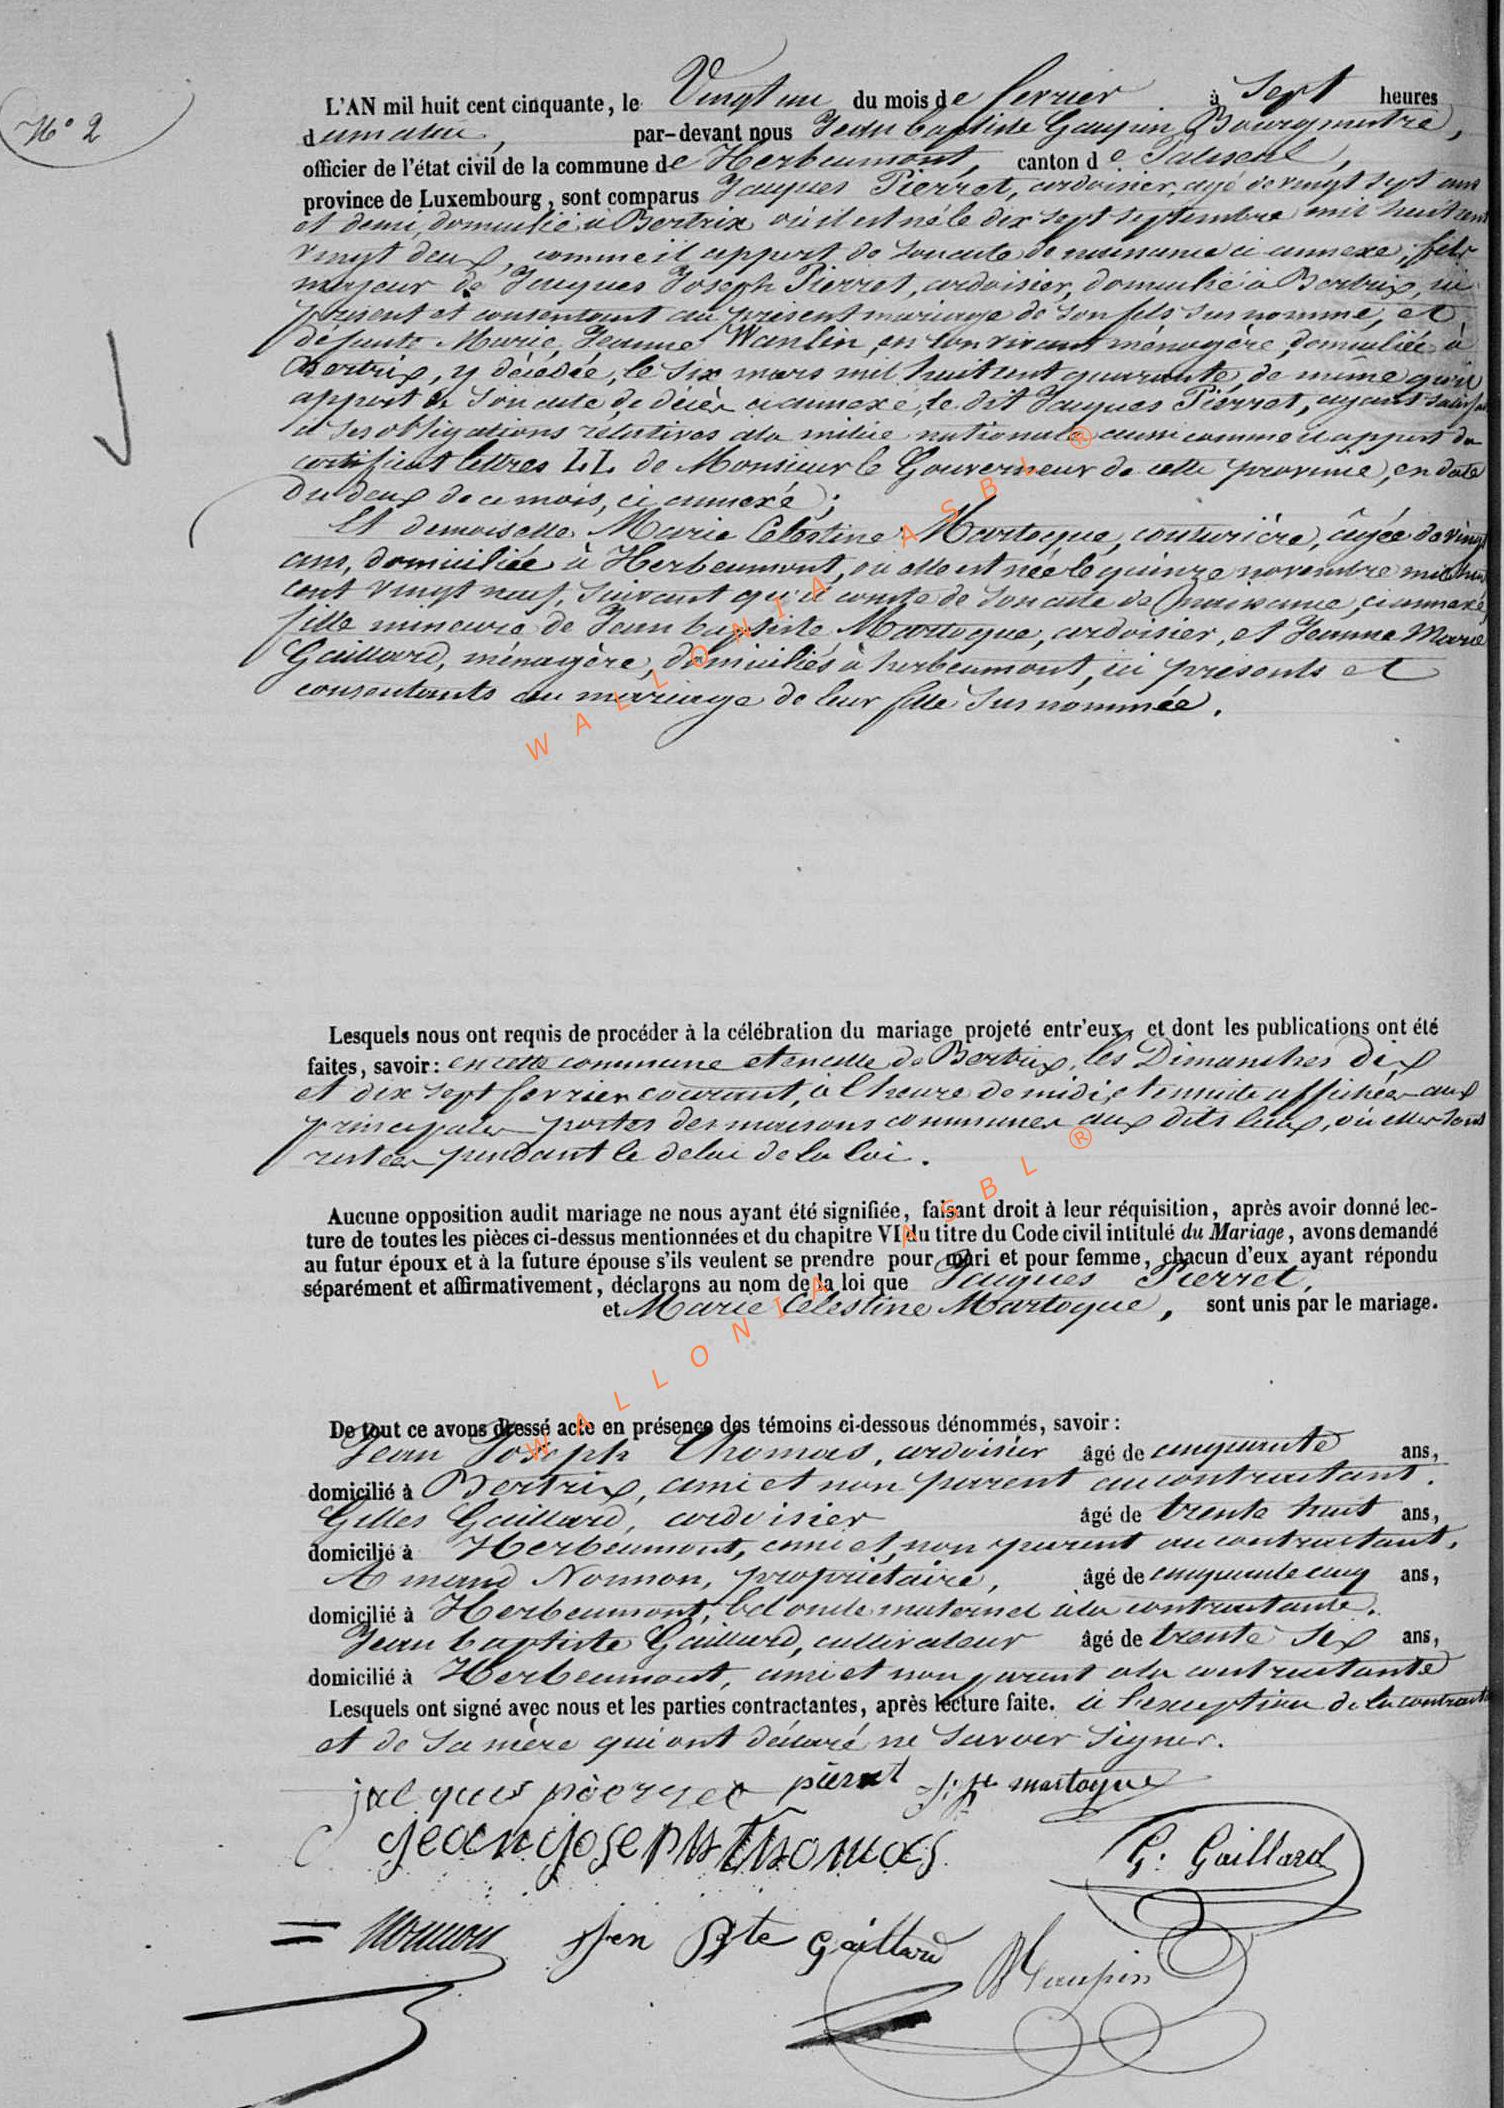 N° 2
L'AN mil huit cent cinquante, le Vingt un du mois de fevrier à Sept heures
du matin, par-devant nous Jean baptiste Gaupin, Bourgmestre,
officier de l'état civil de la commune de Herbeumont, canton de Paliseul,
province de Luxembourg, sont comparus Jacques Pierret, ardoisier, agé de vingt sept ans
et demi, domicilié à Bertrix où il est né le dix sept septembre mil huit cent
vingt deux, comme il appert de son acte de naissance ci annexé, fils
majeur de Jacques Joseph Pierret, ardoisier, domicilié à Bertrix, ici
présent et consentant au présent mariage de son fils sus nommé, et
défunte Marie Jeanne Wanlin, en son vivant ménagère, domiciliée à
Bertrix, y décédée, le six mars mil huit cent quarante, de même qu'il
appert de son acte de décès ci annexé, le dit Jacques Pierret, ayant satisfait
à ses obligations relatives à la milice nationale aussi comme il appert du
certificat lettres LL de Monsieur le Gouverneur de cette province, en date
du deux de ce mois, ci annexé;
Et demoiselle Marie Célestine Martoque, couturière, âgée de vingt
ans, domiciliée à Herbeumont, où elle est née le quinze novembre mil huit
cent vingt neuf, suivant qu'il conste de son acte de naissance, ci annexé,
fille mineure de Jean baptiste Martoque, ardoisier, et Jeanne Marie
Gaillard, ménagère, domiciliés à herbeumont, ici présents et
consentants au mariage de leur fille sus nommée.
WALLONIA ASBL ®
Lesquels nous ont requis de procéder à la célébration du mariage projeté entr'eux, et dont les publications ont été
faites, savoir: en cette commune et en celle de Bertrix, les Dimanches dix
et dix sept fevrier courant, à l'heure de midi, et ensuite affichées aux
principales portes des maisons communes aux dits lieux, où elles sont
restées pendant le delai de la loi.
Aucune opposition audit mariage ne nous ayant été signifiée, faisant droit à leur réquisition, après avoir donné lec-
ture de toutes les pièces ci-dessus mentionnées et du chapitre VI du titre du Code civil intitulé du Mariage, avons demandé
au futur époux et à la future épouse s'ils veulent se prendre pour mari et pour femme, chacun d'eux ayant répondu
séparément et affirmativement, déclarons au nom de la loi que Jacques Pierret,
et Marie Célestine Martoque, sont unis par le mariage.
WALLONIA ASBL ®
De tout ce avons dressé acte en présence des témoins ci-dessous dénommés, savoir:
Jean Joseph Thomas, ardoisier âgé de cinquante ans,
domicilié à Bertrix, ami et non parent au contractant.
Gilles Gaillard, ardoisier âgé de trente huit ans,
domicilié à Herbeumont, ami et non parent au contractant.
Amand Nonnon, propriétaire, âgé de cinquante cinq ans,
domicilié à Herbeumont, bel oncle maternel à la contractante.
Jean baptiste Gaillard, cultivateur âgé de trente six ans,
domicilié à Herbeumont, ami et non parent à la contractante
Lesquels ont signé avec nous et les parties contractantes, après lecture faite. à l'exception de la contractante
et de sa mère qui ont déclaré ne savoir signer.
jacques pierret pierret J. Bte martoque
jean joseph thomas G. Gaillard
Nonnon Jean Bte Gaillard Gaupin